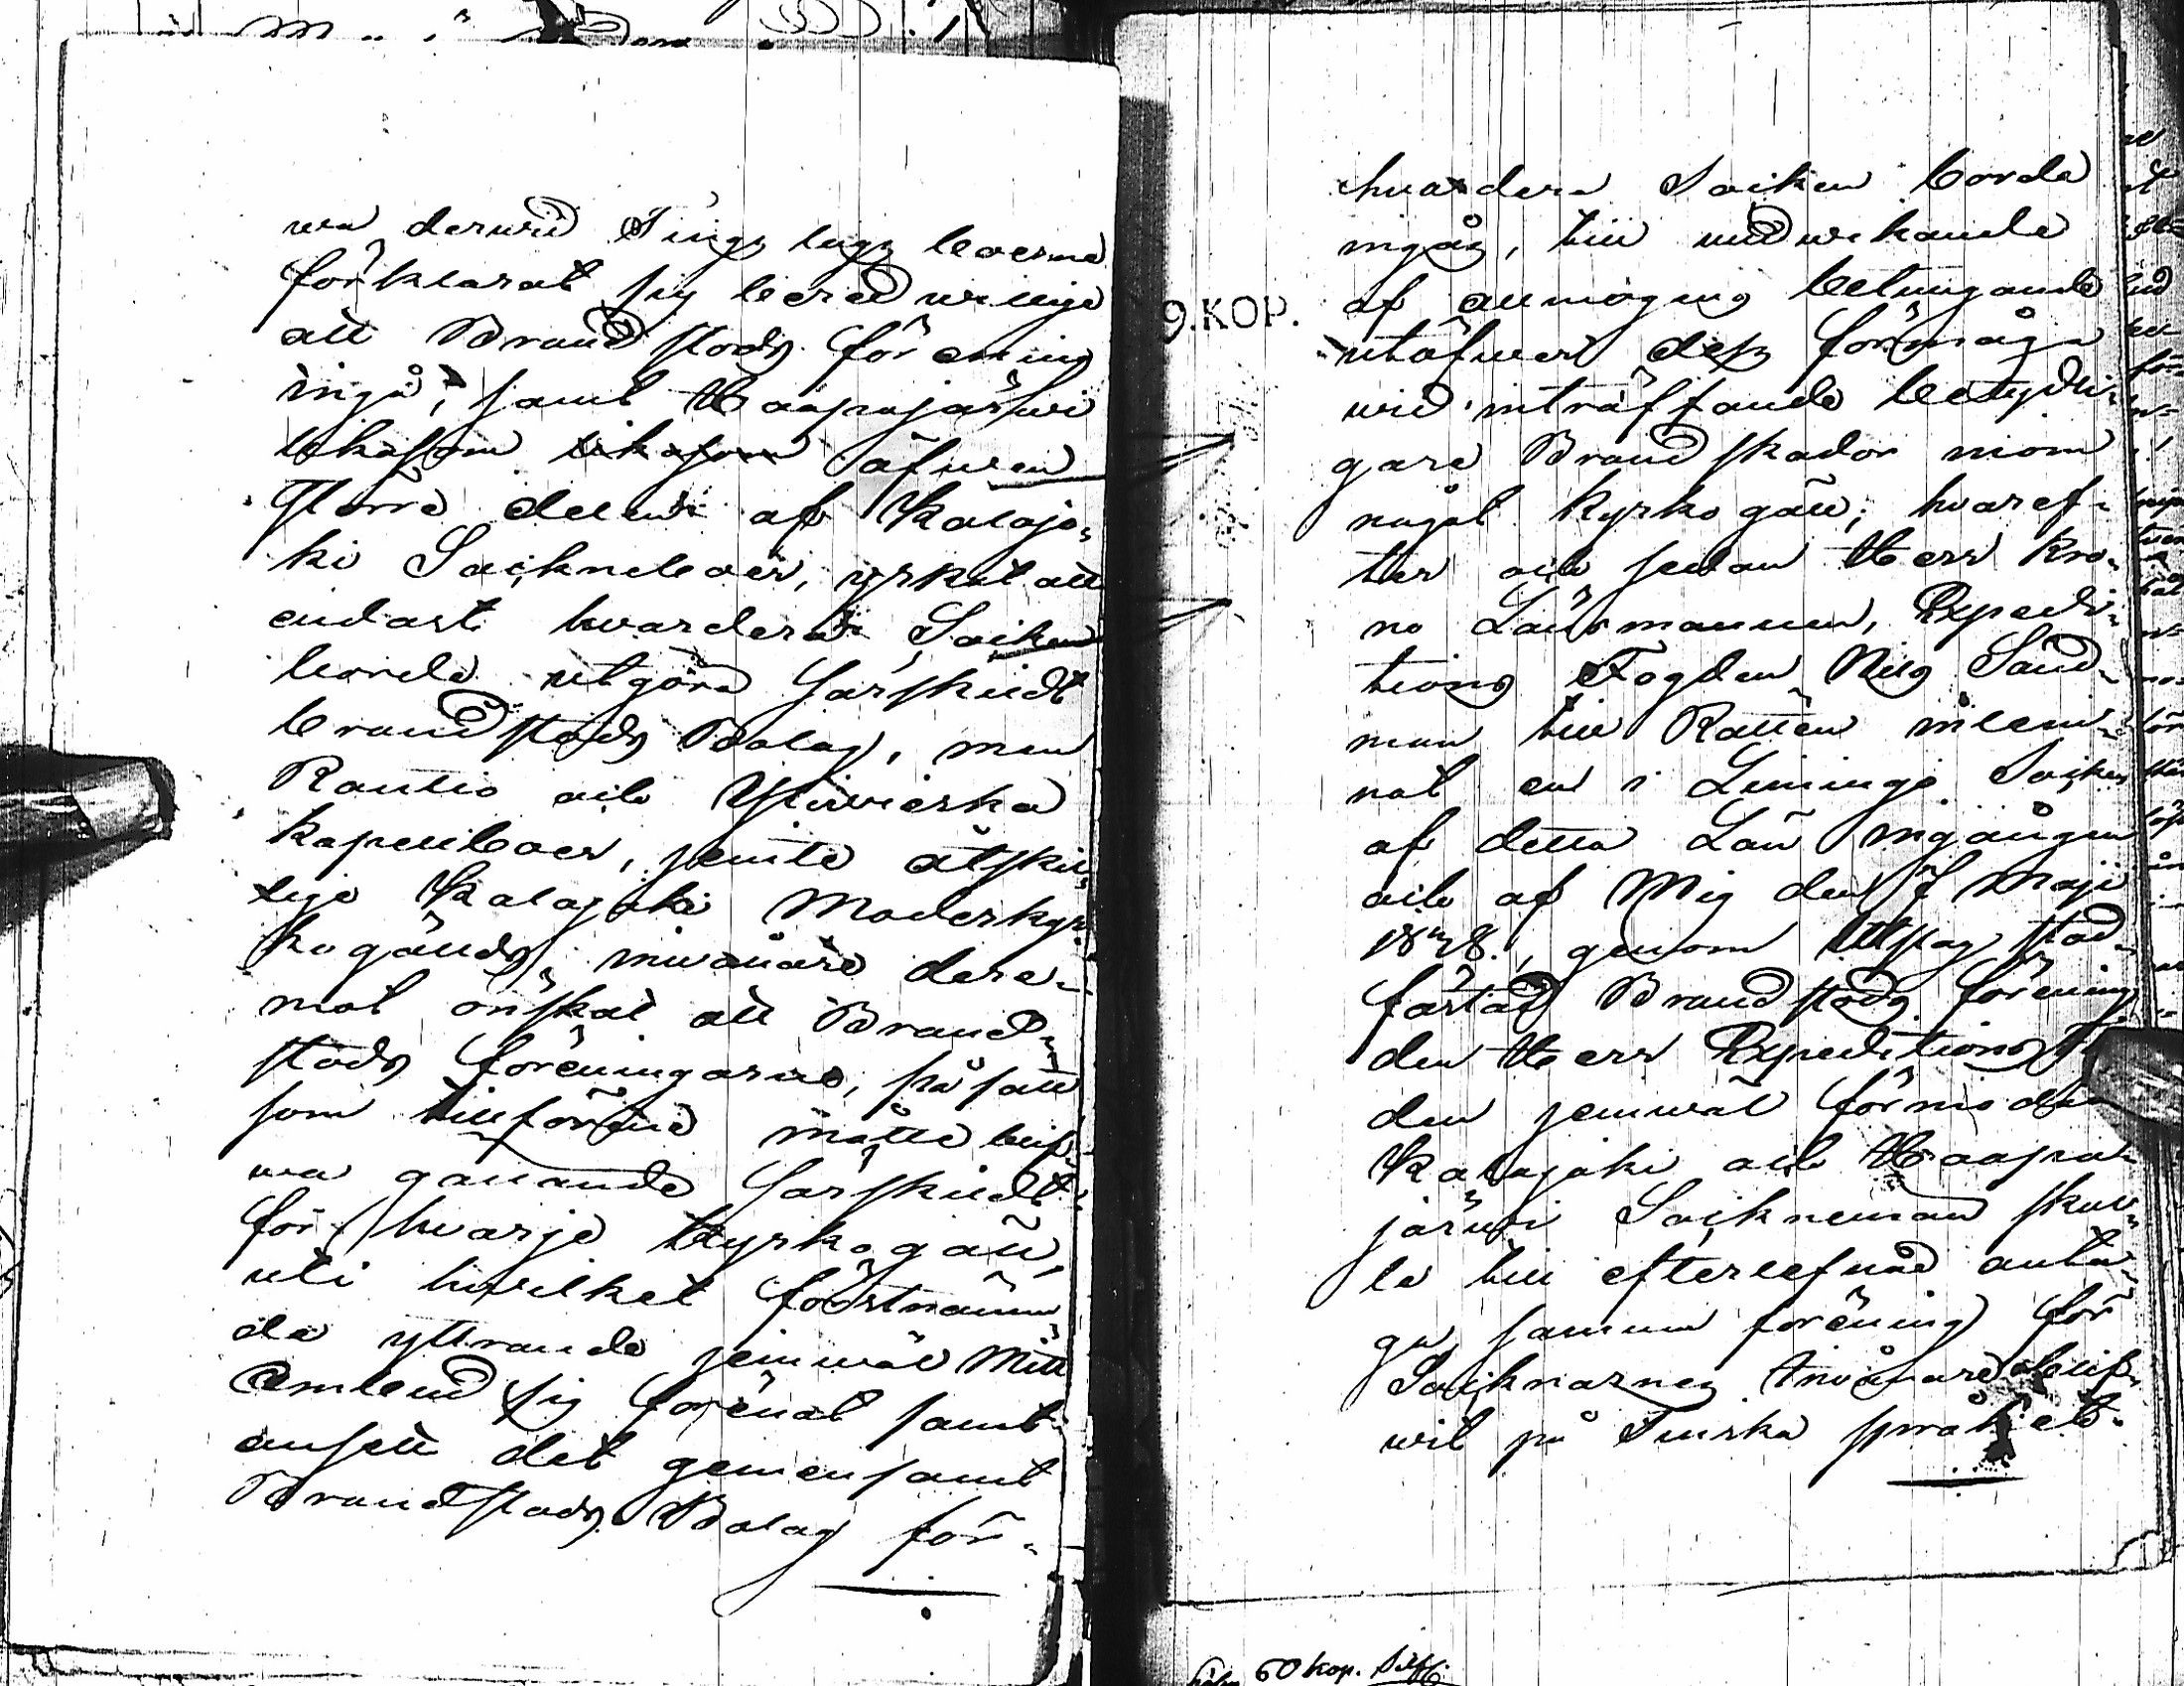 wa derwid Tings lags boerne
förklarat sig beredwillige
att Brandstods förening
ingå; samt Haapajärwi
likasom likasom äfwen
större delen af Kalajo-
ki Sockneboer, yrkat att
endast hwardera Socken
borde utgöra särskildt
brandstods Bolag, men
Rautio och Ylivieska
kapellboer, jemte åtskil-
lige Kalajoki Moderkyr-
kogälds inwånare dere-
mot önskat att Brand-
stods föreningarne, på sätt
som tillförene måtte blif-
wa gällande särskildt
för hwarje Kyrkogäll,
uti hwilket förstnämn-
da yttrande jemwäl Mitt
Ombud sig förenat samt
ansett det gemensamt
Brandstods Bolag för
hvardera Socken borde
ingås, till undwikande
af allmogens betungande
utöfwer dess förmåga
wid inträffande betydli-
gare Brandskador inom
något Kyrkogäll; hvaref-
ter och sedan Herr Kro-
no Länsmannen, Expedi-
tions Fogden Nils Sand-
man till Rätten inlem-
nat en i Limingo Socken
af detta Län ingången
och af Mig den 7 Maji
1838, genom Utslag stad-
fästad Brandstods förening
den Herr Expeditions
den jemwäl förmodat
Kalajoki och Haapa-
järwi Socknemän skul-
le till efterlefnad anta-
ga samma förening för
Socknarnes Inwånare blif-
wit på Finska språket
9.KOP.
60 kop. Silf.